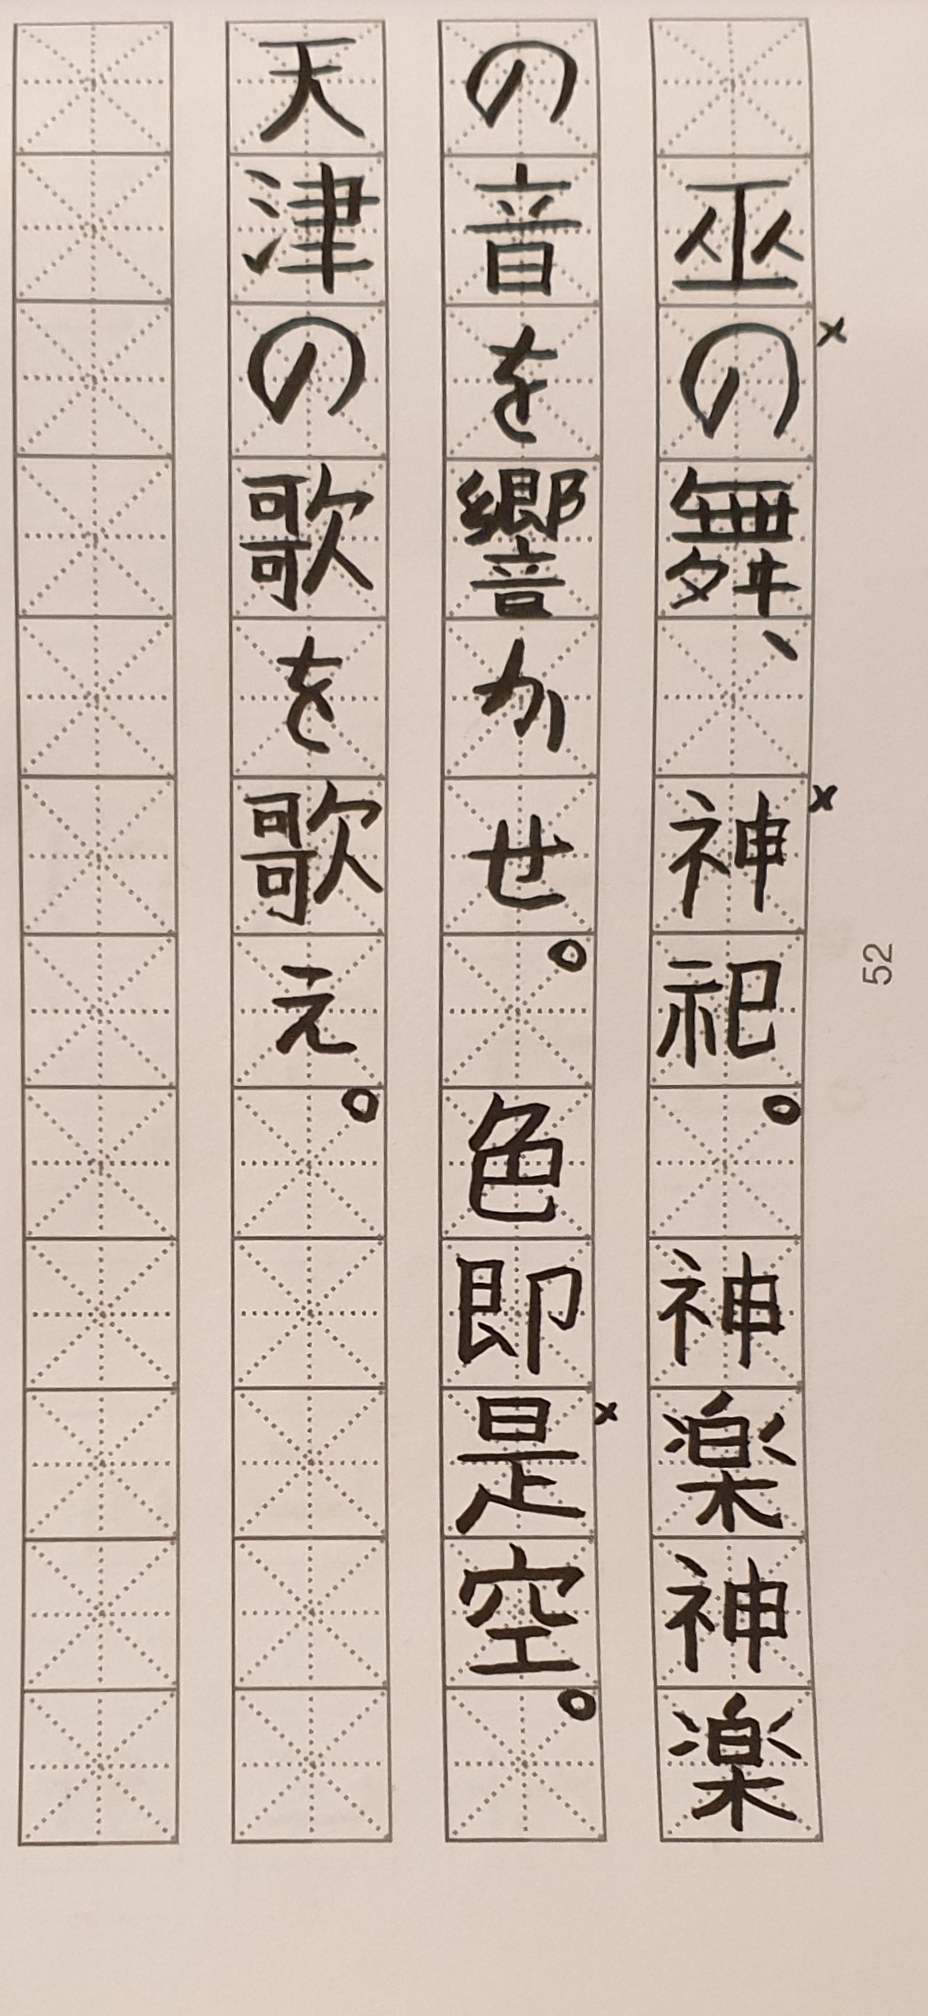 巫の舞、神祀。神楽神楽
の音を響かせ。色即是空。
天津の歌を歌え。
52